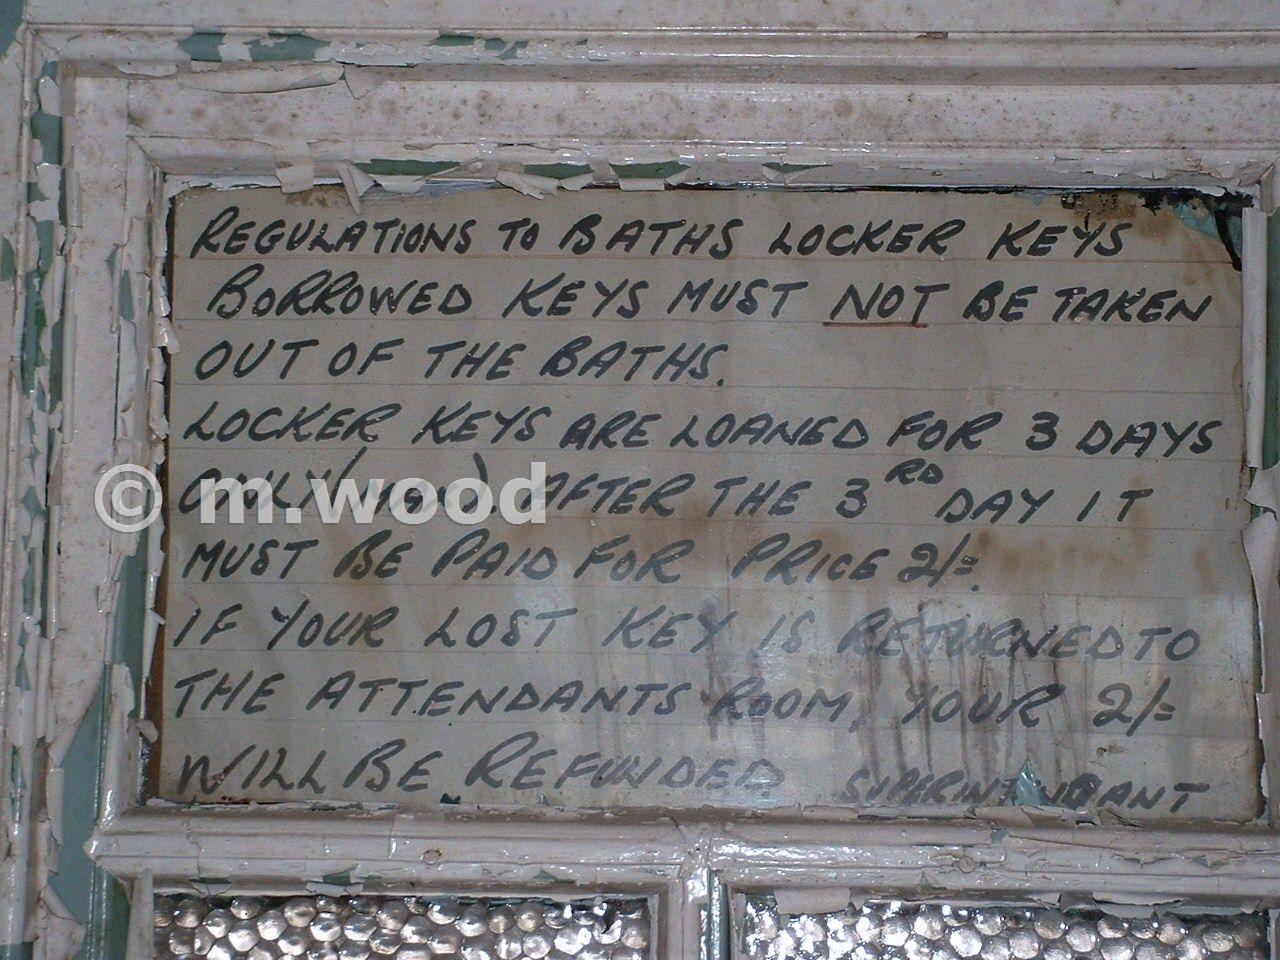 REGULATIONS TO BATHS LOCKER KEYS
BORROWED KEYS MUST NOT BE TAKEN
OUT OF THE BATHS.
LOCKER KEYS ARE LOANED FOR 3 DAYS
ONLY (MAX). AFTER THE 3RD DAY IT
MUST BE PAID FOR PRICE 2/=.
IF YOUR LOST KEY IS RETURNED TO
THE ATTENDANTS ROOM, YOUR 2/=
WILL BE REFUNDED SUPERINTENDANT
© m.wood